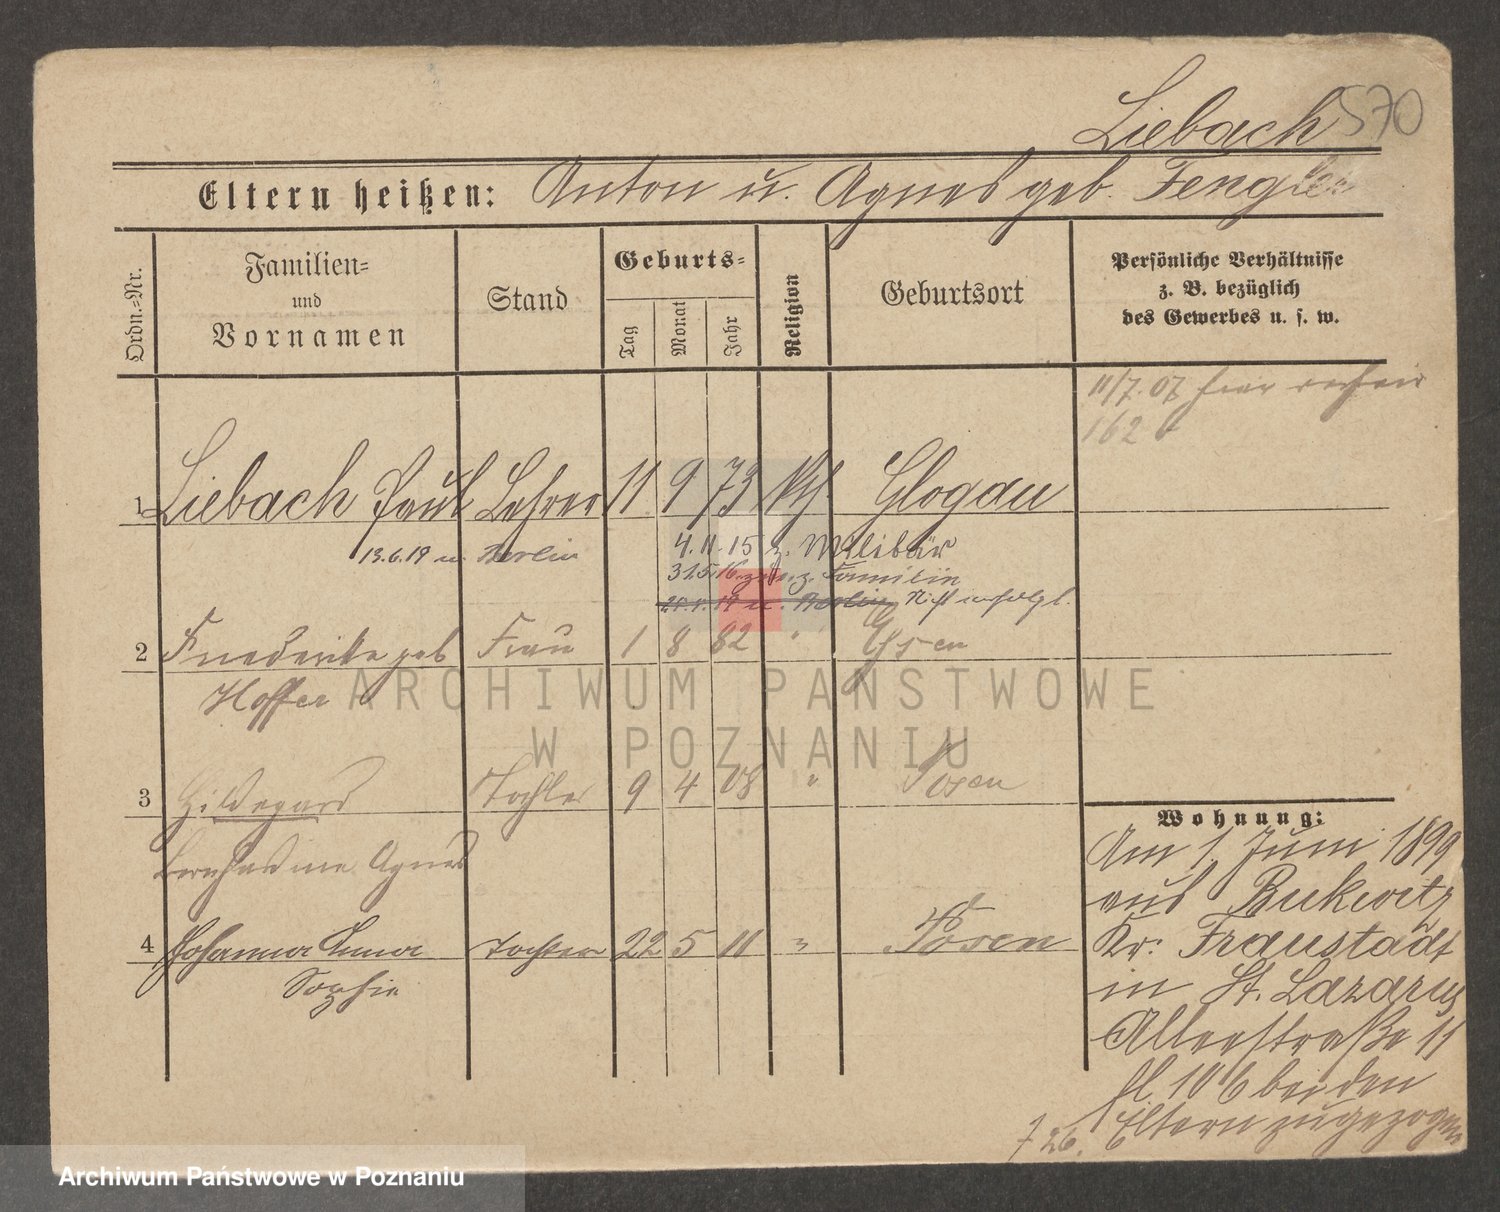 Liebach 570
Eltern heißen: Anton u. Agnes geb. Fengler
Ordn.=Nr.
Familien=
und
Vornamen
Stand
Geburts=
Tag
Monat
Jahr
Religion
Geburtsort
Persönliche Verhältnisse
z. B. bezüglich
des Gewerbes u. s. w.
11/7. 07
162
1 Liebach Paul Lehrer 11 9 73 kth. Glogau
13.6.19 n. Berlin
4.11.15 z. Militär
31.5.16 z. Familie
n. Berlin Nicht erfolgt.
2 Friederike geb Frau 1 8 82 " Essen
Hoffer
3 Hildegard Tochter 9 4 08 " Posen
Bernhardine Agnes
4 Johanna Anna Tochter 22 5 11 " Posen
Sophie
Wohnung:
Am 1. Juni 1899
aus Bukwitz
Kr: Fraustadt
in St. Lazarus
11
bei den
Eltern zugezogen
726.
ARCHIWUM PAŃSTWOWE
W POZNANIU
Archiwum Państwowe w Poznaniu